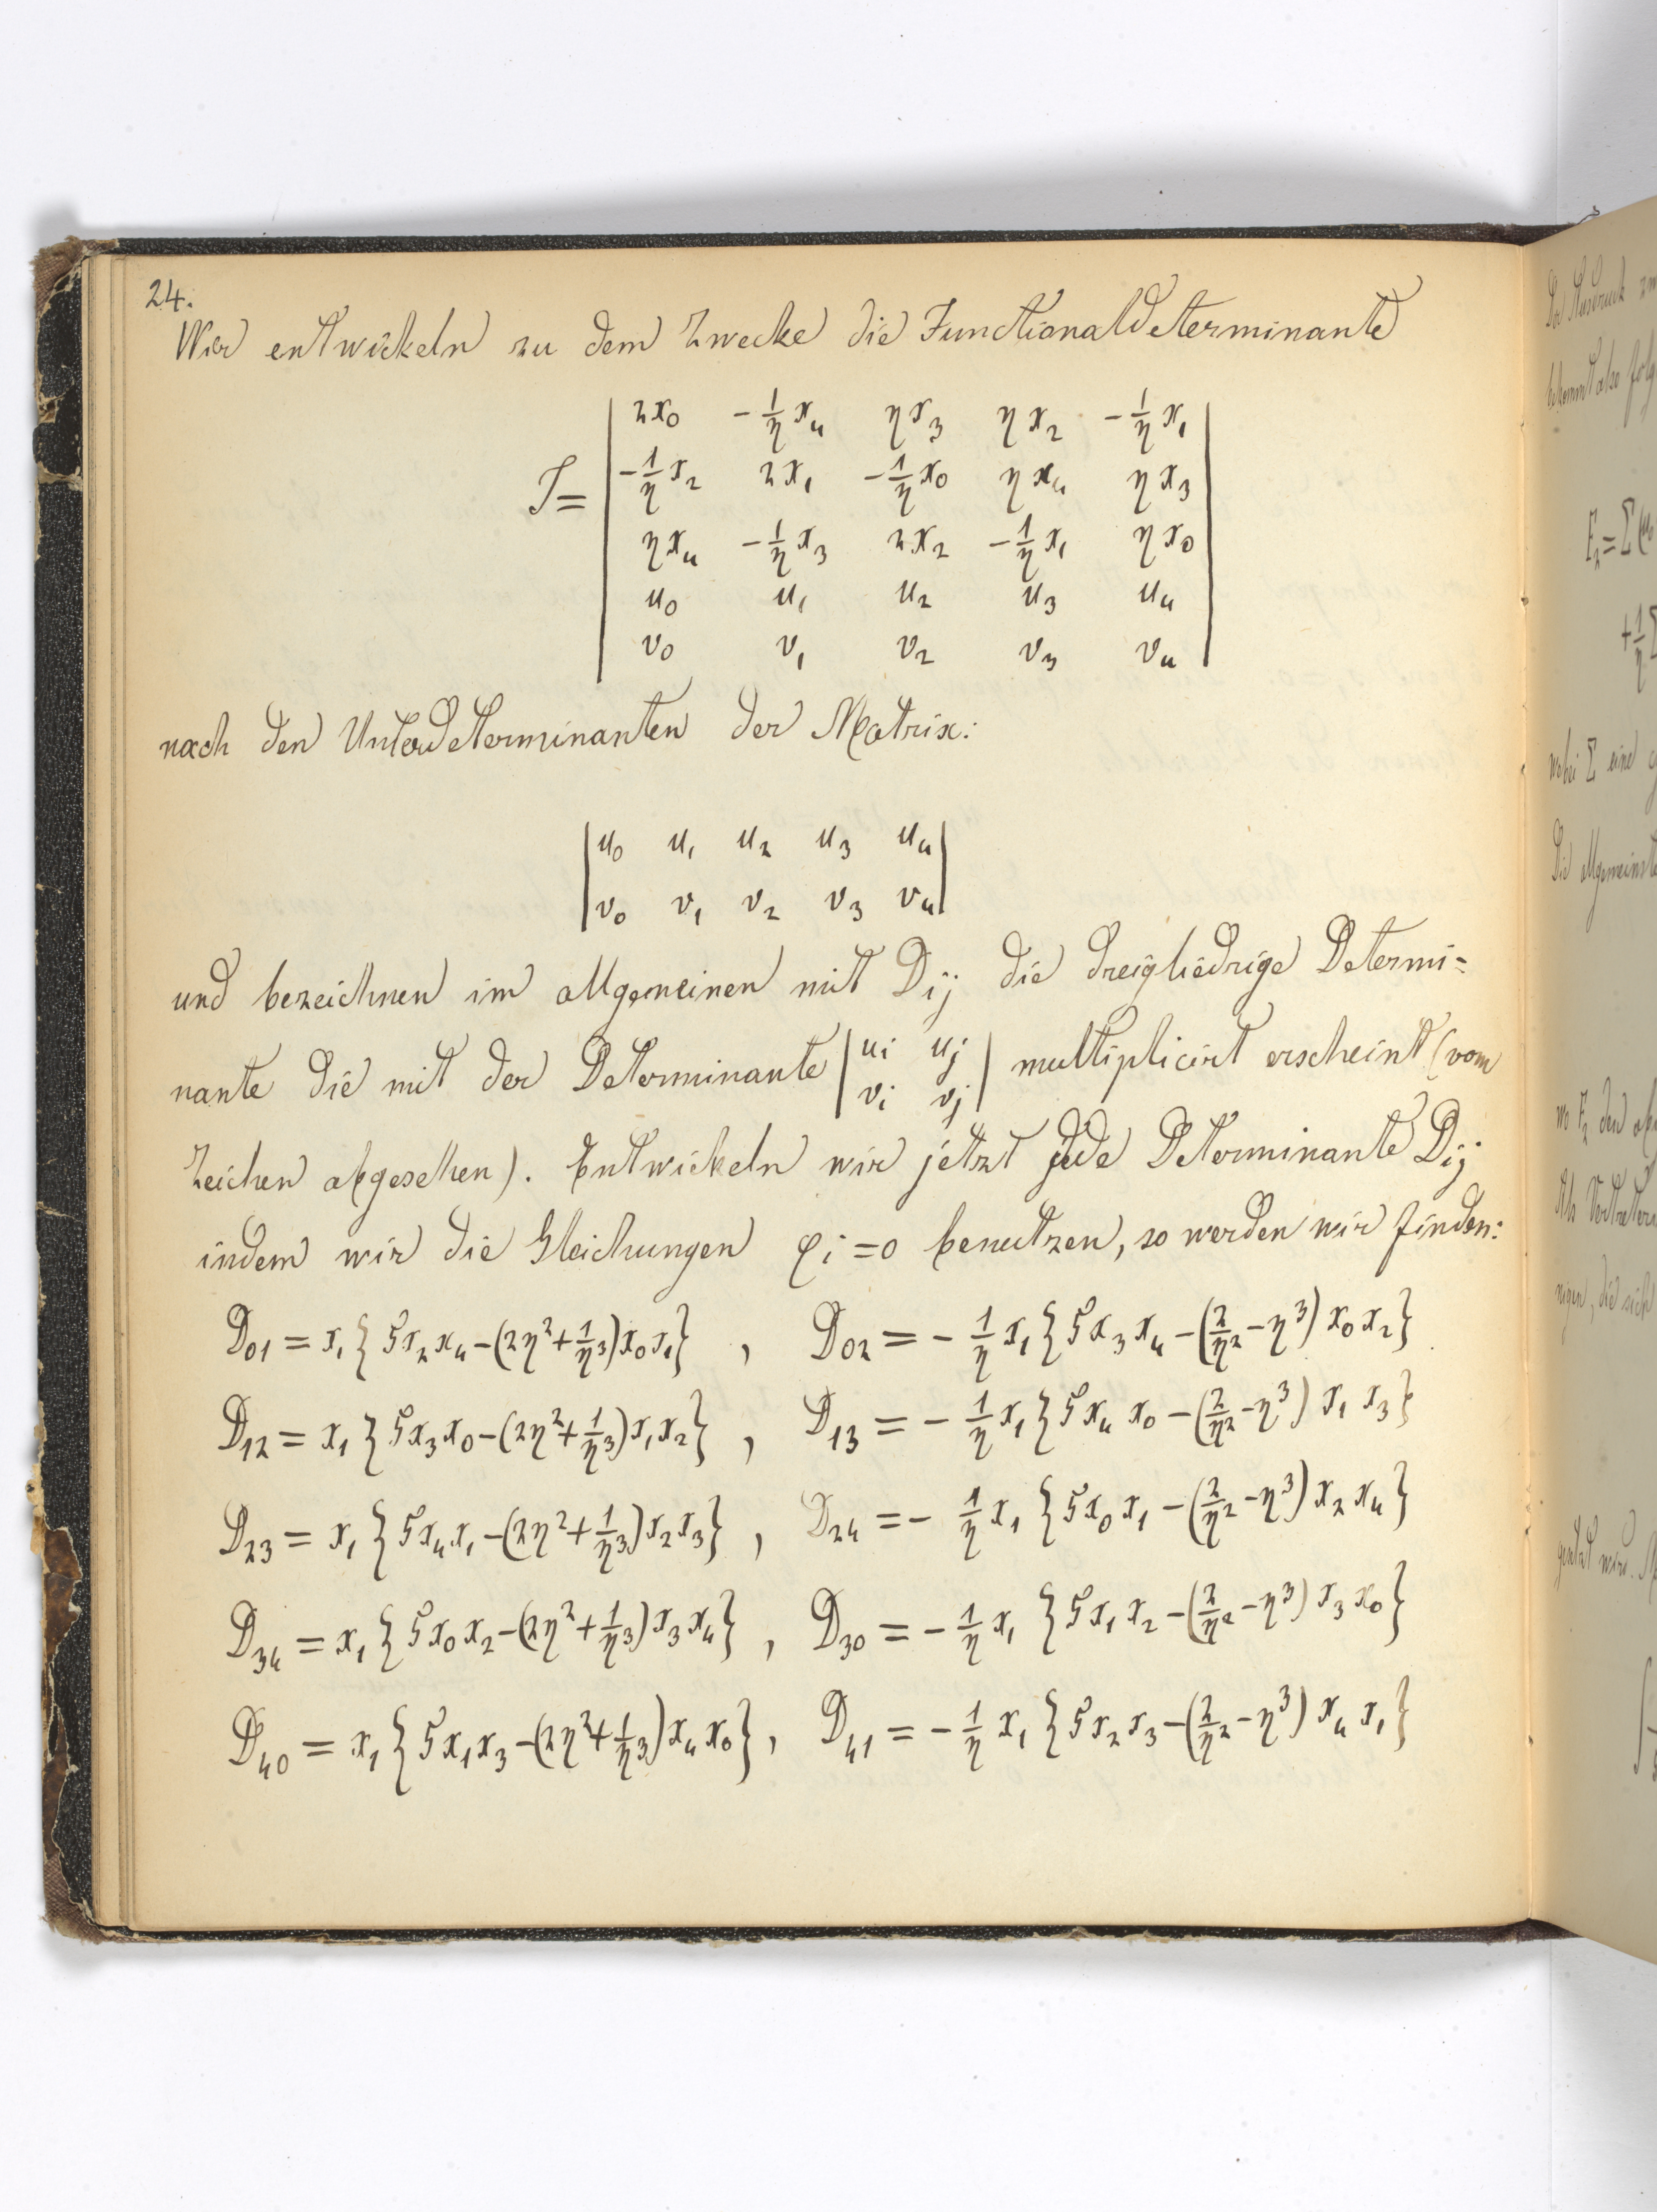 24.
Wir entwickeln zu dem Zwecke die Functionaldeterminante
J = | 2x₀ −1/η x₄ ηx₃ ηx₂ −1/η x₁ |
| −1/η x₂ 2x₁ −1/η x₀ ηx₄ ηx₃ |
| ηx₄ −1/η x₃ 2x₂ −1/η x₁ ηx₀ |
| u₀ u₁ u₂ u₃ u₄ |
| v₀ v₁ v₂ v₃ v₄ |
nach den Unterdeterminanten der Matrix:
| u₀ u₁ u₂ u₃ u₄ |
| v₀ v₁ v₂ v₃ v₄ |
und bezeichnen im allgemeinen mit Dij die dreigliedrige Determi=
nante die mit der Determinante | ui uj | multiplicirt erscheint (vom
| vi vj |
Zeichen abgesehen). Entwickeln wir jetzt jede Determinante Dij
indem wir die Gleichungen φi = 0 benutzen, so werden wir finden:
D₀₁ = x₁{5x₂x₄−(2η²+1/η³)x₀x₁} , D₀₂ = −1/η x₁{5x₃x₄−(2/η²−η³)x₀x₂}
D₁₂ = x₁{5x₃x₀−(2η²+1/η³)x₁x₂} , D₁₃ = −1/η x₁{5x₄x₀−(2/η²−η³)x₁x₃}
D₂₃ = x₁{5x₄x₁−(2η²+1/η³)x₂x₃} , D₂₄ = −1/η x₁{5x₀x₁−(2/η²−η³)x₂x₄}
D₃₄ = x₁{5x₀x₂−(2η²+1/η³)x₃x₄} , D₃₀ = −1/η x₁{5x₁x₂−(2/η²−η³)x₃x₀}
D₄₀ = x₁{5x₁x₃−(2η²+1/η³)x₄x₀} , D₄₁ = −1/η x₁{5x₂x₃−(2/η²−η³)x₄x₁}